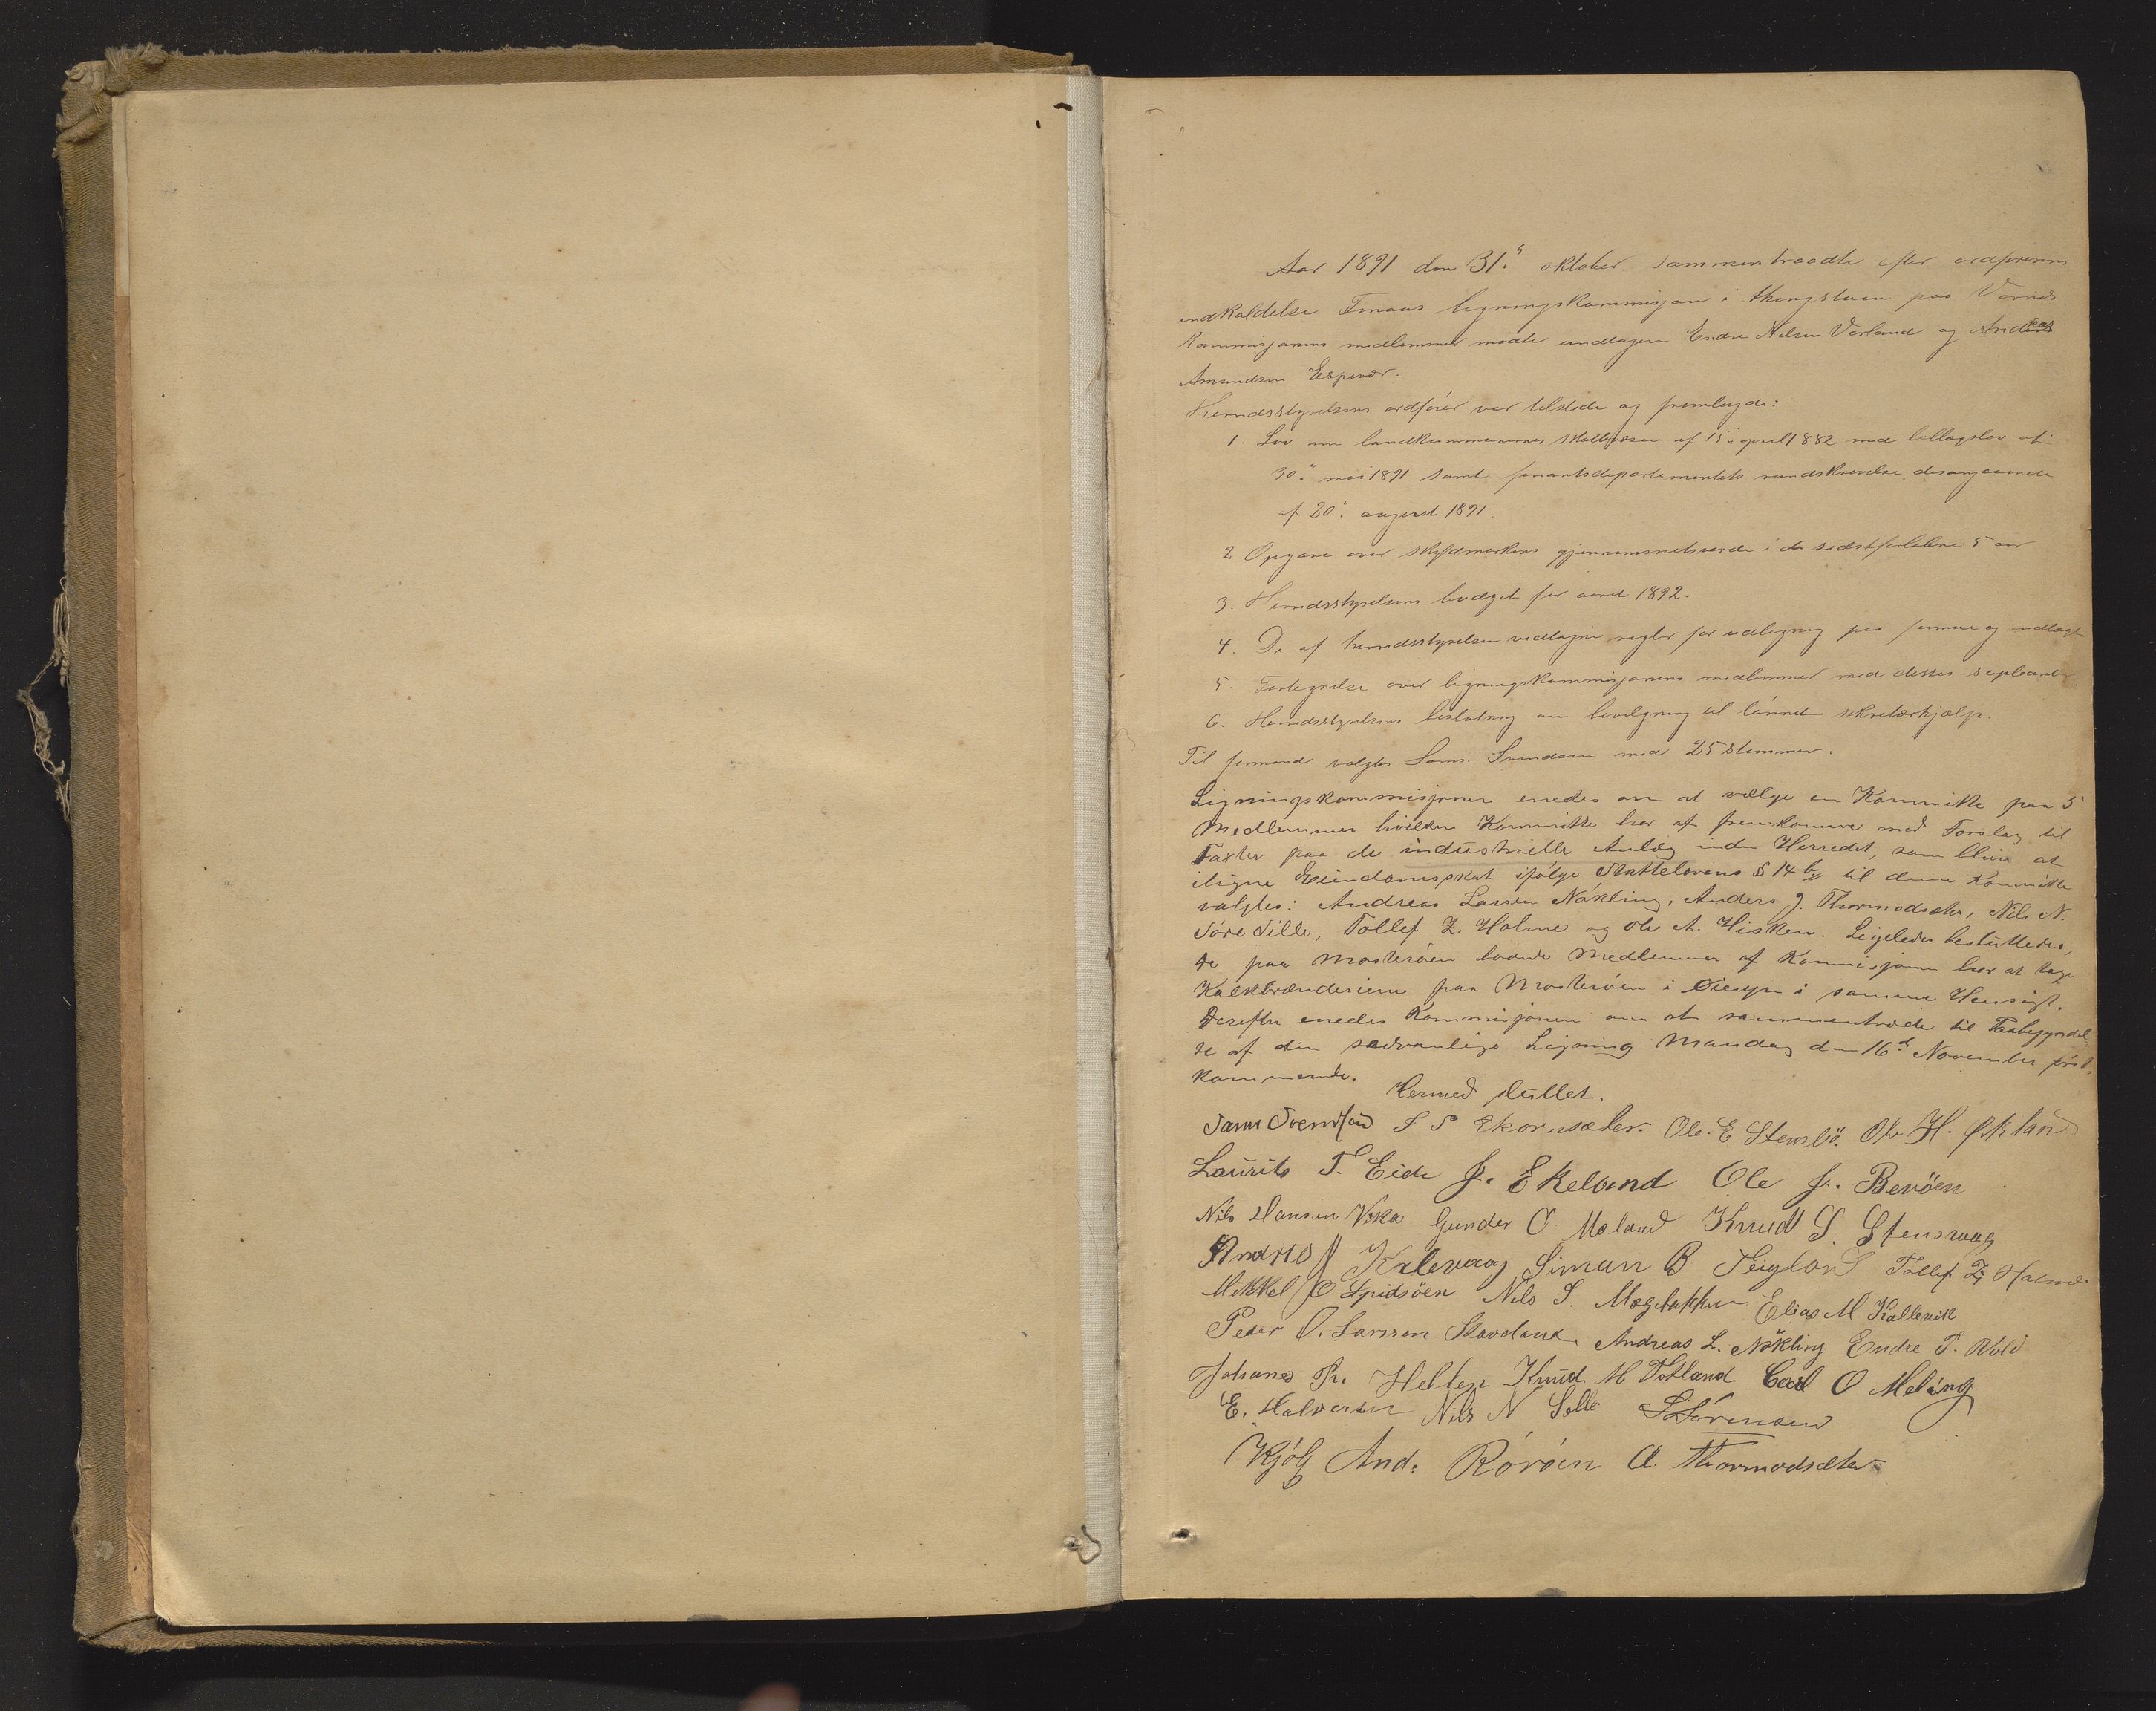 Aar 1891 den 31. oktober sammentraadte efter ordførerens
indkaldelse Finaas ligningskommisjon i thingstuen paa
Kommisjonens medlemmer mødte undtagen Endre Nilsen Vorland og Andreas
Amundsen Espevær.
Herredsstyrelsens ordfører var tilstede og fremlagde:
1. Lov om landkommunernes skattevæsen af 15. april 1882 med tillægslov af
30. mai 1891 samt finantsdepartementets rundskrivelse desangaaende
af 20. august 1891.
2 Opgave over skyldmarkens gjennemsnitsværdi i de sidstforløbne 5 aar
3. Herredsstyrelsens budget for aaret 1892.
4. De af herredsstyrelsen vedtagne regler for udligning paa formue og indtægt
5. Fortegnelse over ligningskommisjonens medlemmer med disses supleanter
6. Herredsstyrelsens beslutning om bevilgning til lönnet sekretærhjælp.
Til formand valgtes Sams. Svendsen med 25 stemmer.
Ligningskommisjonen enedes om at vælge en Kommitte paa 5
Medlemmer hvilken Kommitte har at fremkomme med Forslag til
Taxter paa de industrielle Anlæg inden Herredet, som blive at
iligne Eiendomsskat ifølge Skattelovens § 14 til denne Kommitte
valgtes: Andreas Larsen Nökling, Anders J. Thormodsæter, Nils N.
Söre Sille, Tollef Z. Holme og Ole A. Hisken. Ligeledes besluttedes,
de paa Mosterøen boende Medlemmer af Kommisjonen har at tage
Kalkbrænderierne paa Mosterøen i Øiesyn i samme Hensigt.
Derefter enedes Kommisjonen om at sammentræde til Paabegyndel-
se af den sædvanlige Ligning Mandag den 16de November først-
kommende.
Hermed sluttet.
Sams Svendsen S S Ekornsæter. Ole. E Stensbö. Ole H. Økland
Laurits T. Eide J. Ekeland Ole J. Beröen
Nils Hansen Vika Gunder O Mæland Knud S. Stensvaag
Kalevaag Siman B Teigland Tollef Z Holme
Mikkel O Spidsöen Nils S. Elias M Kallevik
Peder O. Larssen Andreas L. Nökling Endre T. Vold
Johanes Hellen Knud M Totland Carl O Meling
E. Halvorsen Nils N Selle S Sörensen
And: Röröen A. Thormodsæter